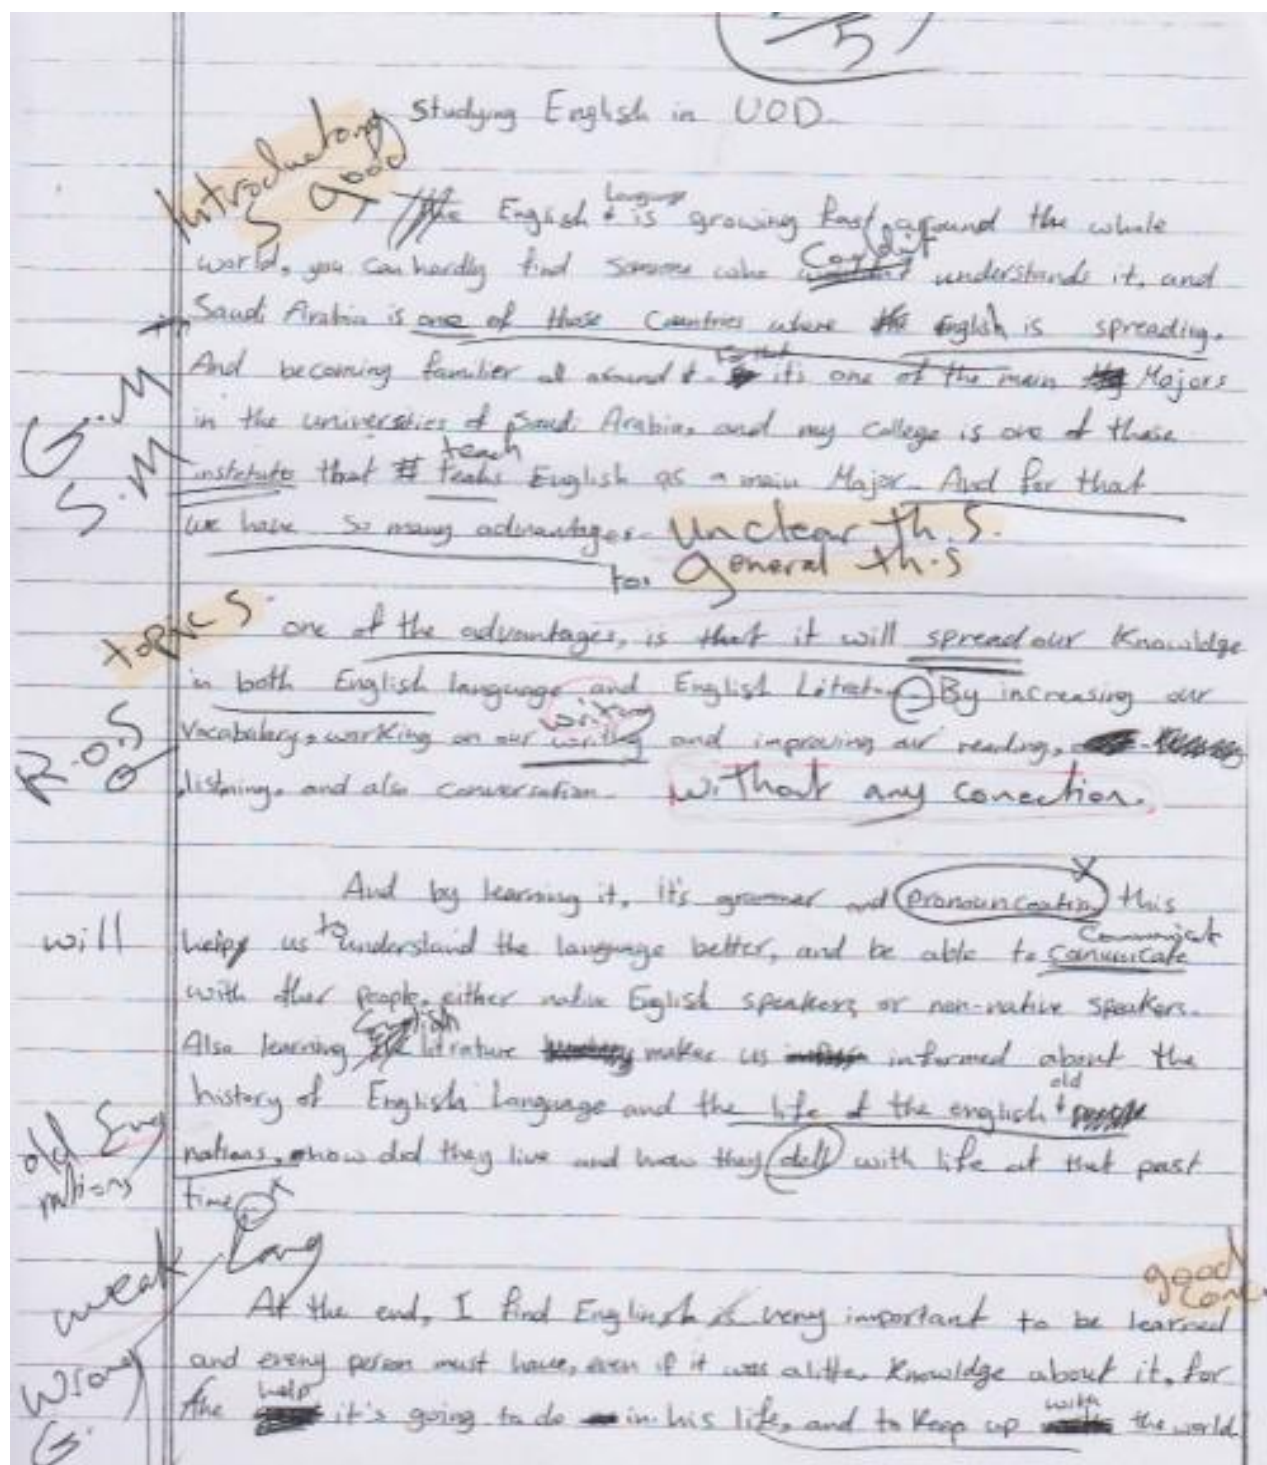 5
Studying English in UOD
Introductory
S good
Language
The English is growing fast, around the whole
Couldn't
world, you can hardly find someone who understands it, and
Saudi Arabia is one of those Countries where the English is spreading.
And becoming familier all around it's one of the main Majors
G.M
in the universities of Saudi Arabia, and my College is one of those
teach
S.M
instetute that teahs English as a main Major. And for that
we have so many advantages. Unclear th.S.
too general th.S
topic S.
one of the advantages, is that it will spread our Knowldge
in both English language and English Litratur. By increasing our
writing
R.O.S
Vocabulary, working on our writing and improving our reading,
listning, and also conversation. without any conection.
And by learning it, it's grammer and pronouncoation this
will
helps us to understand the language better, and be able to comunicate
Communicat
with other people, either native English speakers or non-native speakers.
English
Also learning litrature makes us informed about the
history of English Language and the life of the english
old
old Eng
nations
nations, how did they live and how they dell with life at that past
time.
weak Lang
good
conc
At the end, I find Englinsh is very important to be learned
and eveny person must have, even if it was a litte, Knowldge about it, for
Wrong
G.
the help it's going to do in his life, and to Keep up with the world